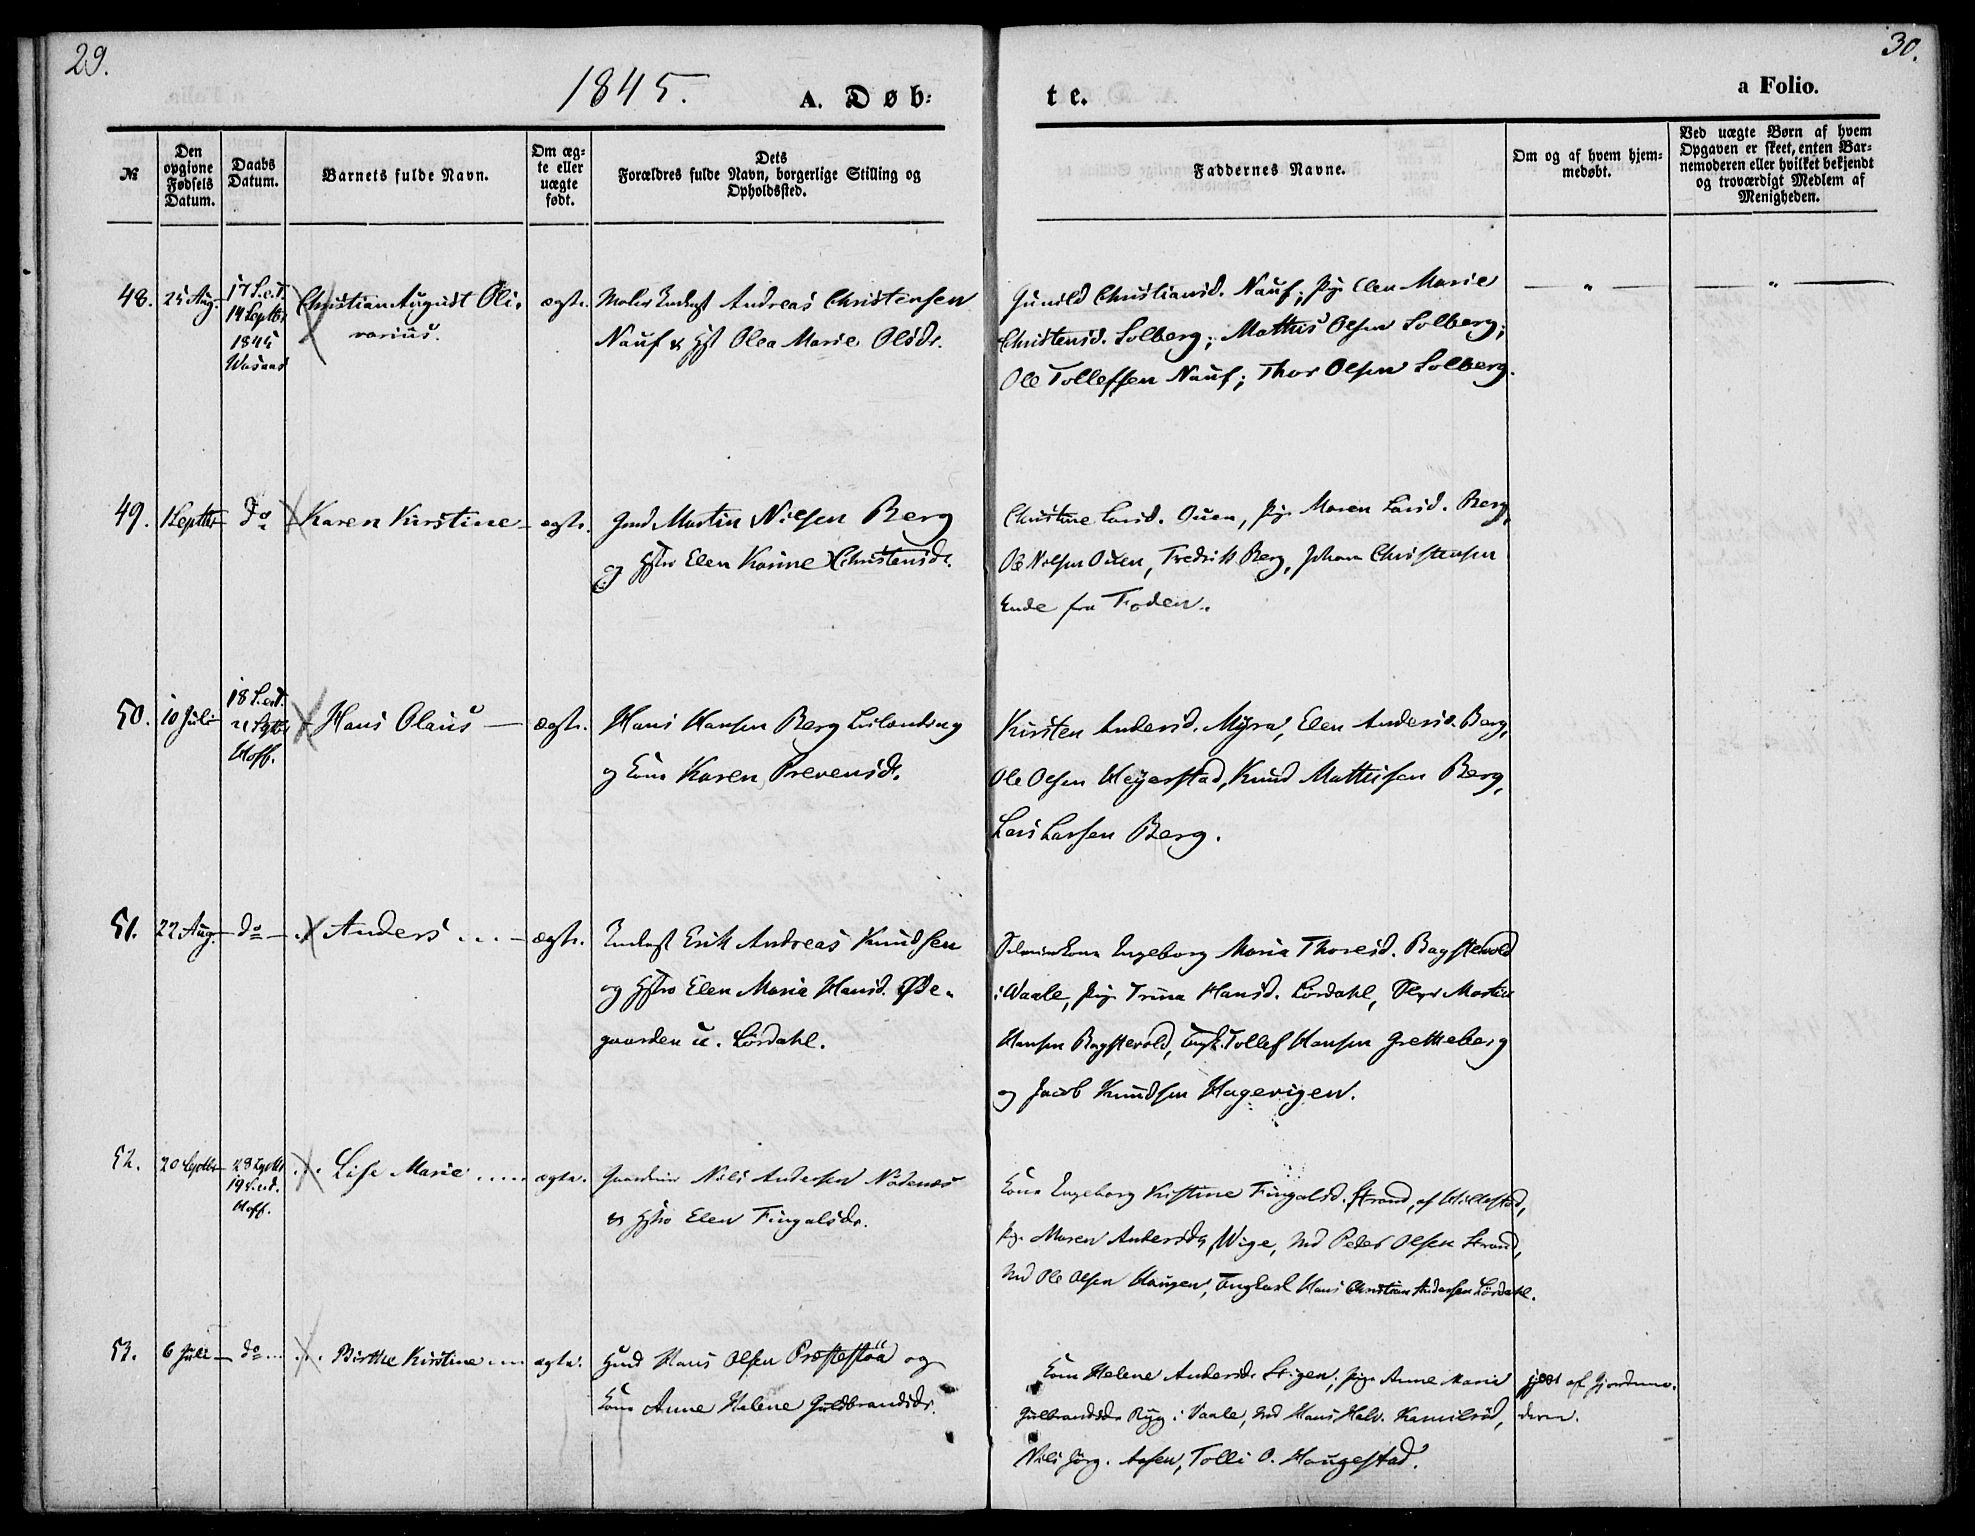 29.
30.
1845.
A. Døb-
te.
a Folio.
№
Den opgivne Fødsels Datum.
Daabs Datum.
Barnets fulde Navn.
Om ægte eller uægte født.
Dets Forældres fulde Navn, borgerlige Stilling og Opholdssted.
Faddernes Navne.
Om og af hvem hjemmedøbt.
Ved uægte Børn af hvem Opgaven er skeet, enten Barnemoderen eller hvilket bekjendt og troværdigt Medlem af Menigheden.
48.
25 Aug.
17 S.e.T.
14 Septbr
1845
Christian August Oli-
varius.
ægte.
Andreas Christensen
Nauf & Olea Marie Olsdr.
Gunild Christiansd. Nauf; Pig. Elen Marie
Christensd. Solberg; Mathis Olsen Solberg;
Ole Tollefsen Nauf; Thor Olsen Solberg.
49.
1 Septbr
do
Karen Kirstine
ægte.
Gmd Martin Nielsen Berg
og Hstr Elen Karine Christensdr.
Christine Larsd. Ouen, Pig. Maren Larsd. Berg,
Ole Nilsen Ouen, Fredrik Berg, Johan Christensen
Ende fra Foden.
50.
10 Juli
18 S.e.T.
21 Sptbr
Hoff.
Hans Olaus
ægte.
Hans Hansen Berg
og Kone Karen Prevensdr.
Kirsten Andersd. Myra, Elen Andersd. Berg,
Ole Olsen Heyerstad, Knud Mathisen Berg,
Lars Larsen Berg.
51.
22 Aug.
do
Anders
ægte.
Erik Andreas Knudsen
og Hstro Elen Maria Hansd. Øde-
gaarden u. Lördahl.
Ingeborg Maria Thoresd. Bagstevold
i Waale, Pig. Trina Hansd. Lördahl, Morten
Hansen Bagstevold, Ungk. Tollef Hansen Gretteberg
og Jacob Knudsen Hagevigen.
52.
20 Septbr
28 Septbr
19 S.e.T.
Hoff.
Lise Marie
ægte.
Gaardmd Nils Andersen Nödenæs
& Hstro Elen Fingalsdr.
Kone Ingeborg Kristine Fingalsd. Strand, af Hillestad,
Pig. Maren Andersdr Wige, Md Peder Olsen Strand,
Md Ole Olsen Haugen, Ungkarl Hans Christian Andersen Lördahl.
53.
6 Juli
do
Birthe Kirstine
ægte.
Hmd Hans Olsen Præstestöa og
Kone Anne Helene Guldbrandsdr.
Kone Helene Andersdr. Stigen; Pig. Anne Marie
Gulbrandsdr Ryg i Vaale, Md Hans Halv. Kamilröd,
Nils Jörg. Aasen, Tolli O. Haugestad.
jdbt af Gjordemo-
deren.